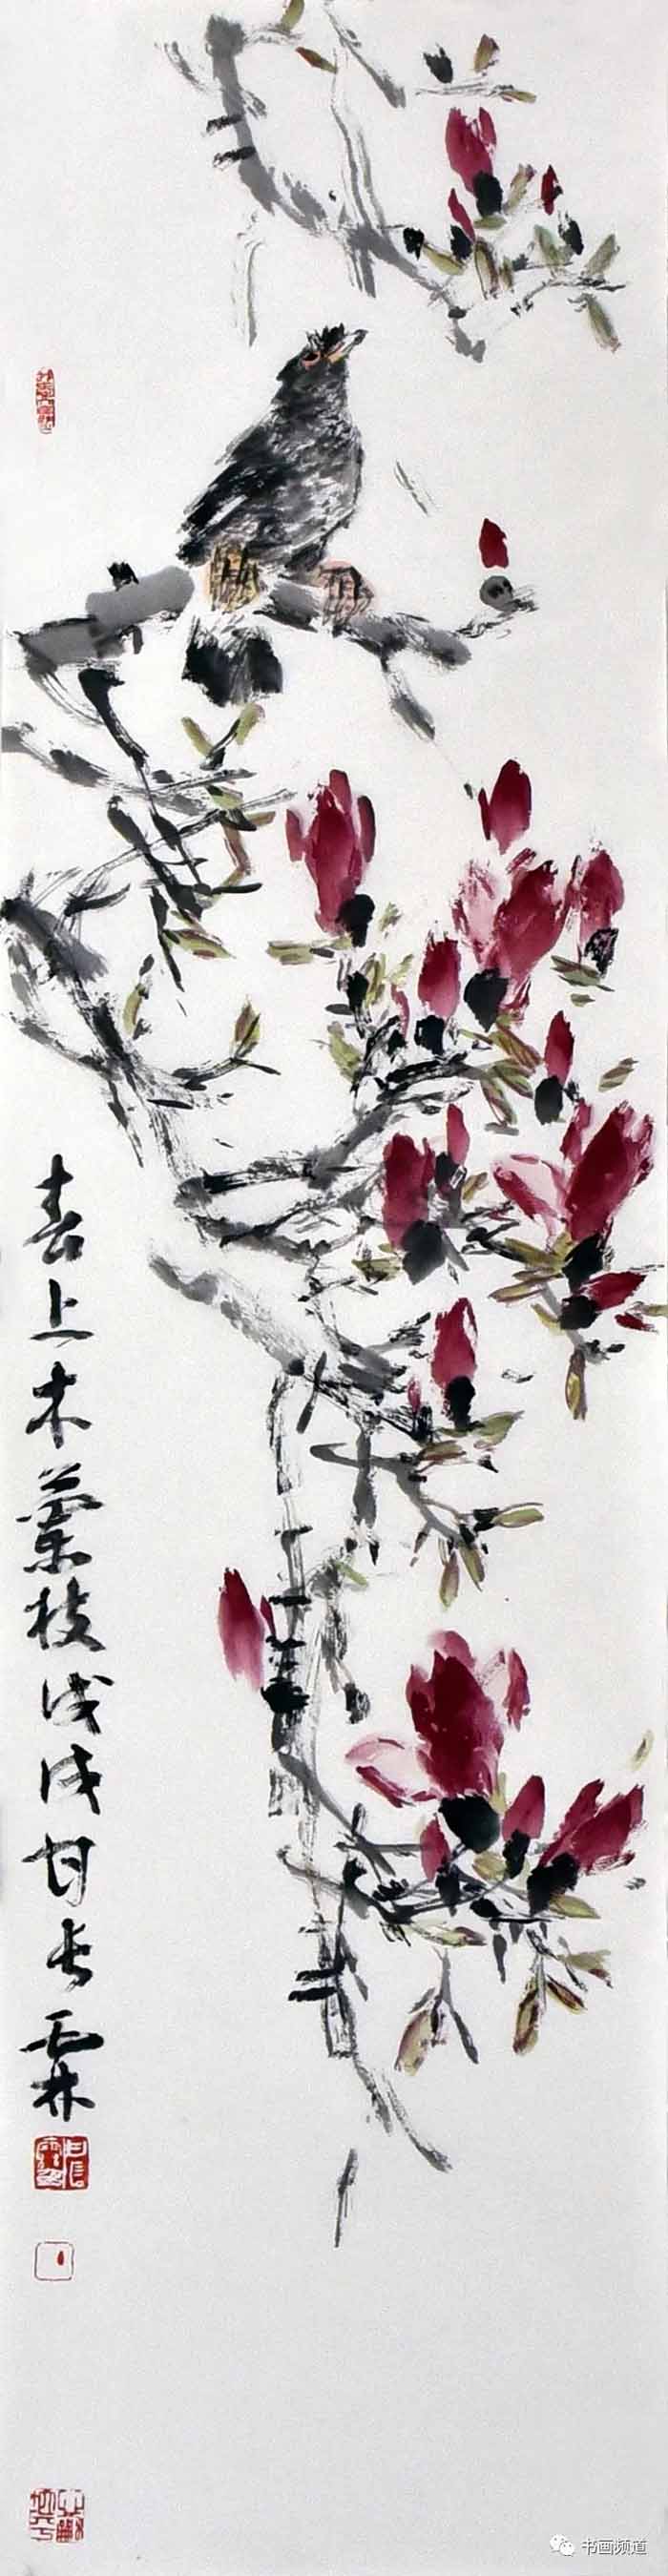 春上木蘭枝戊戌甘长霖
书画频道